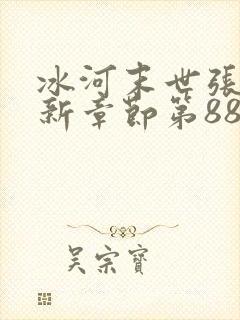 冰河末世張
新章節第88
吴宗寶